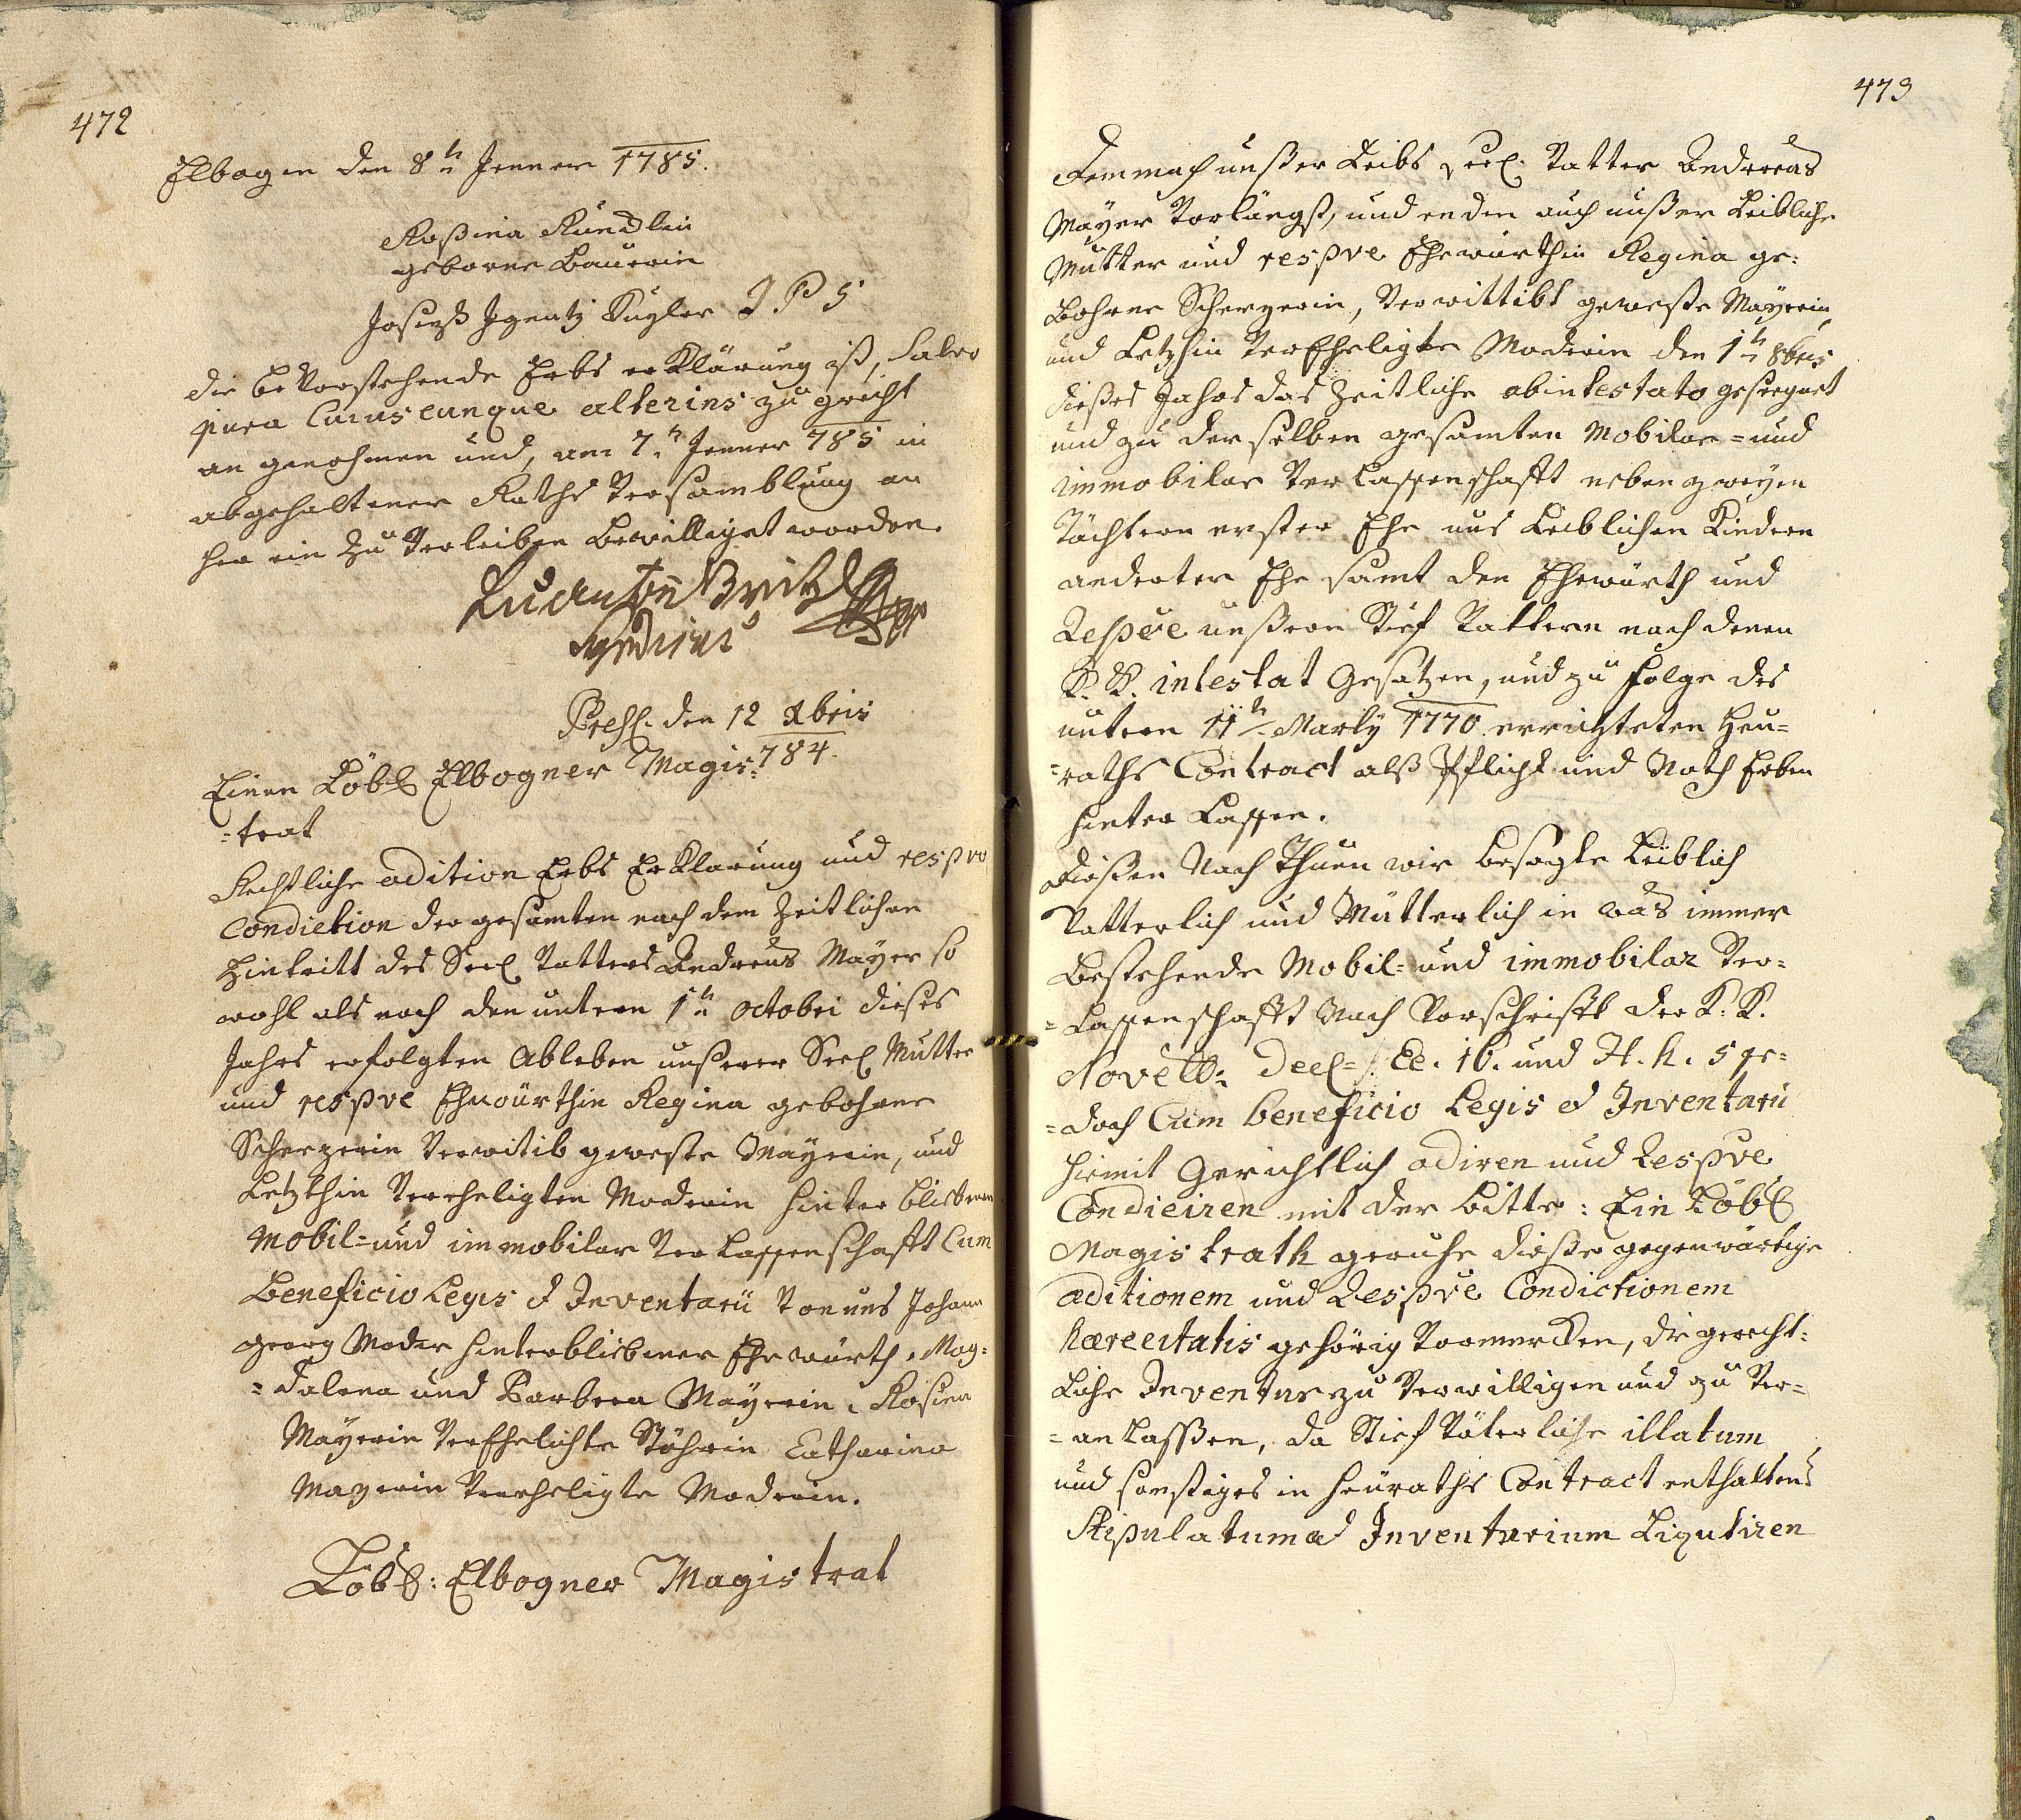 472
Elbogen den 8tn Jenner 1785.
Roßina Kündlin
geborne Bauerin
Joseph Ignatz Kugler I P S
die bevorstehende Erbs erklärung ist, Salvo
jure Cuiuscunque alterius zu gricht
an genohmen und, am 7tn Jenner 785 in
abgehaltener Raths versamblung an
her ein zu verleiben bewilliget worden.
Syndicus
den 12 Xbris
784.
Einen Löbl Elbogner Magis:
=trat
Rechtliche adition Erbs Erklarung und respve
Condiction der gesamten nach dem zeitlichen
Hintritt des Seel Vatters Andreas Mayer so
wohl als nach den untern 1tn octobri dieses
Jahrs erfolgten Ableben unserer Seel Mutter
und respve Ehewürthin Regina gebohrne
Scherzerin verwitib geweste Mayerin, und
letzthin Verheligten Moderin hinter bliebenen
Mobil= und immobilar verlassenschafft Cum
Beneficio Legis et Inventarii von uns Johann
georg Moder hinterbliebener Ehewürth, Mag=
=dalena und Barbara Mayerin, Rosina
Mayerin verEhelichte Stöhrin Catharina
Mayerin Verheligte Moderin.
Löbl: Elbogner Magistrat
473
Demnach unßer Leibs Seel. Vatter Andreas
Mayer vorlängst, und enden auch unßer Leibliche
Mutter und respve Ehewürthin Regina ge:
bohrne Scherzerin, verwittibt geweste Mayerin
und letzhin verEheligte Moderin den 1tn 8bris
dießes Jahrs das zeitliche abintestato geseegnet
und zu derselben gesamten Mobilar= und
immobilar verlassenschafft neben zweyen
Töchtern erster Ehe uns Leiblichen Kindern
anderter Ehe samt den Ehewürth und
Respve unßern Stief Vattern nach denen
K. K. intestat Gesatzen, und zu folge des
untern 11tn Marty 1770 errichteten Heu=
=raths Contract alß Pflicht und Noth Erben
hinter lassen.
Dießen Nach Thuen wir besagte Leiblich
Vatterlich und Mütterlich in was immer
bestehende Mobil= und immobilar ver=
=lassenschafft Nach Vorschrifft der K: K.
Novell: Decl= §. Ee. 16. und H. h. 5 je=
=doch Cum beneficio Legis et Inventarii
hiemit Gerichtlich adiren und Respve
Condiciren mit der bitte: Ein Löbl
Magistrath geruhe dieße gegenwärtige
aditionem und Respve Condictionem
hæreditatis gehörig vormerken, die gericht:
liche Inventur zu verwilligen und zu ver=
=anlaßen, da Stief väterliche illatum
und sonstiges in heuraths Contract enthaltenes
Stipulatum ad Inventarium Liquidiren